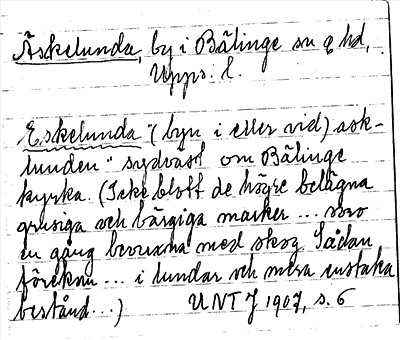 Äskelunda, by i Bälinge sn o hd,
Upps. l.
Eskelunda "(byn i eller vid) ask-
lunden" sydväst om Bälinge
kyrka. (Icke blott de högre belägna
grusiga och bärgiga marker ... voro
en gång bevuxna med skog. Sådan
förekom ... i lundar och mera enstaka
bestånd...) UNT J 1907, s. 6